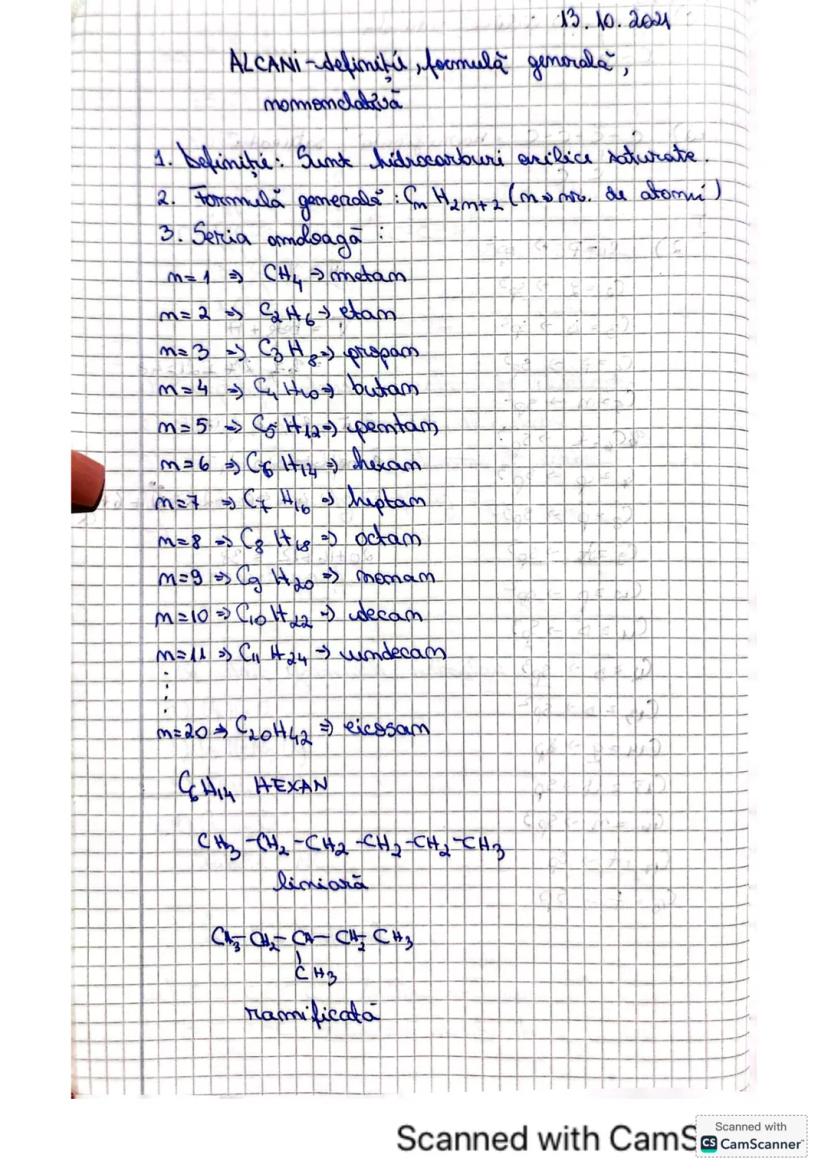 13.10.2021
ALCANI-definiție, formulă generală,
nomenclatură
1. Definiție: Sunt hidrocarburi aciclice saturate.
2. Formulă generală: CnH2n+2 (n⇒nr. de atomi)
3. Seria omoloagă:
n=1 ⇒ CH4 → metan
n=2 ⇒ C2H6 → etan
n=3 ⇒ C3H8 ⇒ propan
n=4 ⇒ C4H10 ⇒ butan
n=5 ⇒ C5H12 ⇒ pentan
n=6 ⇒ C6H14 ⇒ hexan
n=7 ⇒ C7H16 ⇒ heptan
n=8 ⇒ C8H18 ⇒ octan
n=9 ⇒ C9H20 ⇒ nonan
n=10 ⇒ C10H22 ⇒ decan
n=11 ⇒ C11H24 → undecan
n=20 ⇒ C20H42 ⇒ eicosan
C6H14 HEXAN
CH3-CH2-CH2-CH2-CH2-CH3
liniară
CH3-CH2-CH-CH2 CH3
CH3
ramificată
Scanned with CamS
Scanned with
CS CamScanner